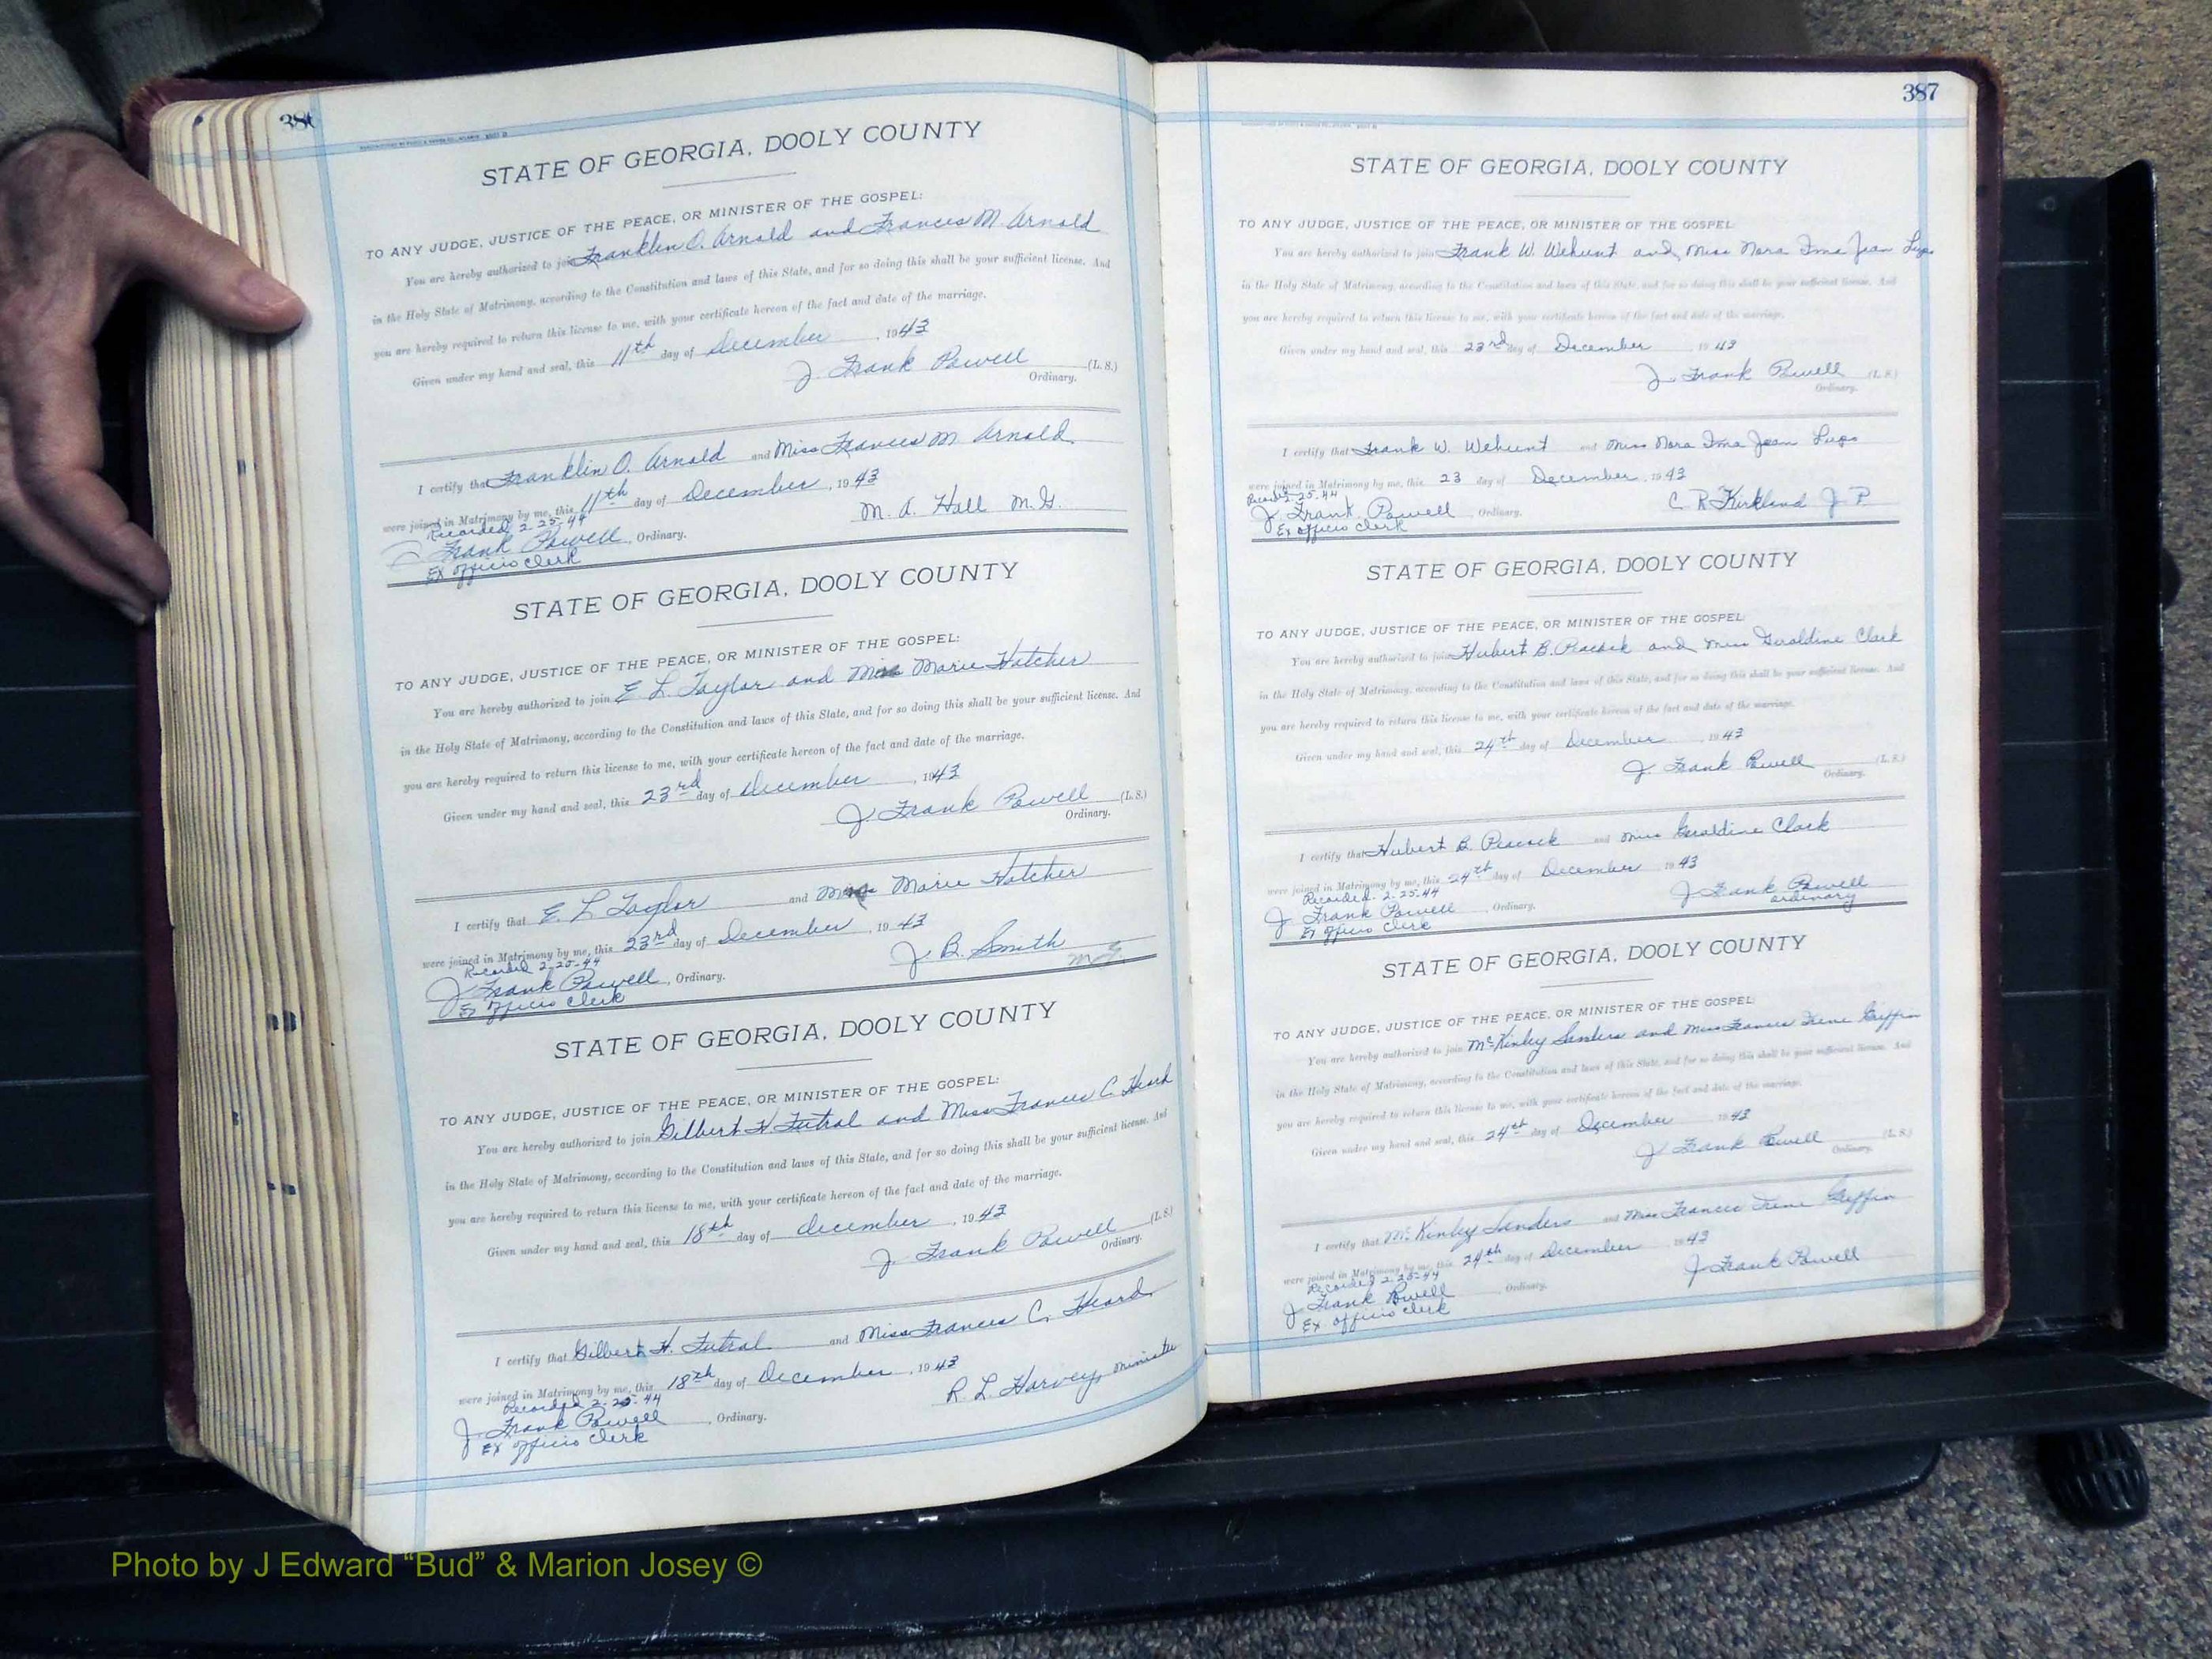 386
STATE OF GEORGIA, DOOLY COUNTY
TO ANY JUDGE, JUSTICE OF THE PEACE, OR MINISTER OF THE GOSPEL:
You are hereby authorized to join Franklin O. Arnold and Frances M. Arnold
in the Holy State of Matrimony, according to the Constitution and laws of this State, and for so doing this shall be your sufficient license. And
you are hereby required to return this license to me, with your certificate hereon of the fact and date of the marriage.
Given under my hand and seal, this 11th day of December, 1943
J. Frank Powell (L. S.)
Ordinary.
I certify that Franklin O. Arnold and Miss Frances M Arnold
were joined in Matrimony by me, this 11th day of December, 1943
Recorded 2-25-44
M. A. Hall M.G.
J Frank Powell, Ordinary.
Ex officio clerk
STATE OF GEORGIA, DOOLY COUNTY
TO ANY JUDGE, JUSTICE OF THE PEACE, OR MINISTER OF THE GOSPEL:
You are hereby authorized to join E L Taylor and Marie Hatcher
in the Holy State of Matrimony, according to the Constitution and laws of this State, and for so doing this shall be your sufficient license. And
you are hereby required to return this license to me, with your certificate hereon of the fact and date of the marriage.
Given under my hand and seal, this 23rd day of December, 1943
J. Frank Powell (L. S.)
Ordinary.
I certify that E. L Taylor and Marie Hatcher
were joined in Matrimony by me, this 23rd day of December, 1943
Recorded 2-25-44
J B. Smith
M.G.
J Frank Powell, Ordinary.
Ex officio clerk
STATE OF GEORGIA, DOOLY COUNTY
TO ANY JUDGE, JUSTICE OF THE PEACE, OR MINISTER OF THE GOSPEL:
You are hereby authorized to join Gilbert H. Futral and Miss Frances C. Heard
in the Holy State of Matrimony, according to the Constitution and laws of this State, and for so doing this shall be your sufficient license. And
you are hereby required to return this license to me, with your certificate hereon of the fact and date of the marriage.
Given under my hand and seal, this 18th day of December, 1943
J. Frank Powell (L. S.)
Ordinary.
I certify that Gilbert H. Futral and Miss Frances C. Heard
were joined in Matrimony by me, this 18th day of December, 1943
Recorded 2-25-44
R L. Harvey, Minister
J. Frank Powell, Ordinary.
Ex officio clerk
387
STATE OF GEORGIA, DOOLY COUNTY
TO ANY JUDGE, JUSTICE OF THE PEACE, OR MINISTER OF THE GOSPEL:
You are hereby authorized to join Frank W. Wehunt and Miss Nora Ima Jean Lupo
in the Holy State of Matrimony, according to the Constitution and laws of this State, and for so doing this shall be your sufficient license. And
you are hereby required to return this license to me, with your certificate hereon of the fact and date of the marriage.
Given under my hand and seal, this 23rd day of December 1943
J. Frank Powell (L. S.)
Ordinary.
I certify that Frank W. Wehunt and Miss Nora Ima Jean Lupo
were joined in Matrimony by me, this 23 day of December, 1943
Recorded 2-25-44
C R Kirkland J P.
J. Frank Powell, Ordinary.
Ex officio clerk
STATE OF GEORGIA, DOOLY COUNTY
TO ANY JUDGE, JUSTICE OF THE PEACE, OR MINISTER OF THE GOSPEL:
You are hereby authorized to join Hubert B. Peacock and Miss Geraldine Clark
in the Holy State of Matrimony, according to the Constitution and laws of this State, and for so doing this shall be your sufficient license. And
you are hereby required to return this license to me, with your certificate hereon of the fact and date of the marriage.
Given under my hand and seal, this 24th day of December, 1943
J. Frank Powell (L. S.)
Ordinary.
I certify that Hubert B. Peacock and Miss Geraldine Clark
were joined in Matrimony by me, this 24th day of December 1943
Recorded 2-25-44
J Frank Powell
ordinary
J Frank Powell, Ordinary.
Ex officio clerk
STATE OF GEORGIA, DOOLY COUNTY
TO ANY JUDGE, JUSTICE OF THE PEACE, OR MINISTER OF THE GOSPEL:
You are hereby authorized to join McKinley Sanders and Miss Frances Irene Griffin
in the Holy State of Matrimony, according to the Constitution and laws of this State, and for so doing this shall be your sufficient license. And
you are hereby required to return this license to me, with your certificate hereon of the fact and date of the marriage.
Given under my hand and seal, this 24th day of December, 1943
J Frank Powell (L. S.)
Ordinary.
I certify that McKinley Sanders and Miss Frances Irene Griffin
were joined in Matrimony by me, this 24th day of December 1943
Recorded 2-25-44
J Frank Powell
J Frank Powell, Ordinary.
Ex officio clerk
Photo by J Edward “Bud” & Marion Josey ©